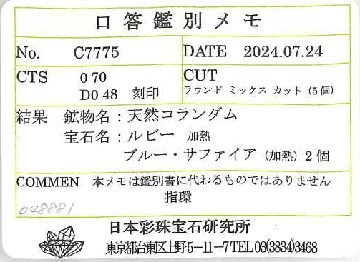 口答鑑別メモ
No. C7775 DATE 2024.07.24
CTS 0 70 CUT
D0 48 刻印 ラウンド ミックス カット (5個)
結果 鉱物名：天然コランダム
宝石名：ルビー 加熱
ブルー・サファイア (加熱) 2個
COMMEN 本メモは鑑別書に代わるものではありません
指環
048881
日本彩珠宝石研究所
東京都台東区上野5-11-7TEL03(3834)3468